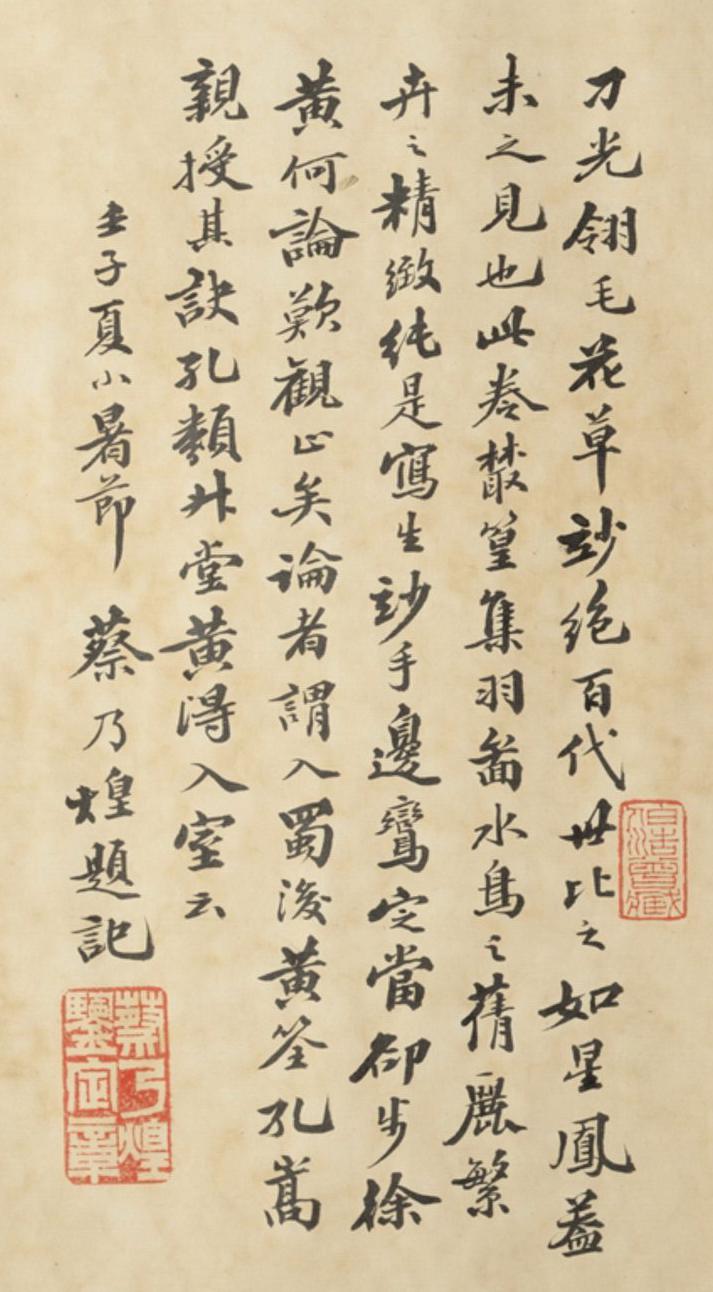 刁光翎毛花草玅絶百代世比之如星鳳蓋
未之見也此卷叢篁集羽啚水鳥之蒨麗繁
卉之精緻純是寫生玅手邊鸞定當卻步徐
黃何論歎觀止矣論者謂入蜀後黃筌孔嵩
親授其訣孔類升堂黃得入室云
壬子夏小暑節 蔡乃煌題記
伯浩寶藏
蔡乃煌鑒定章